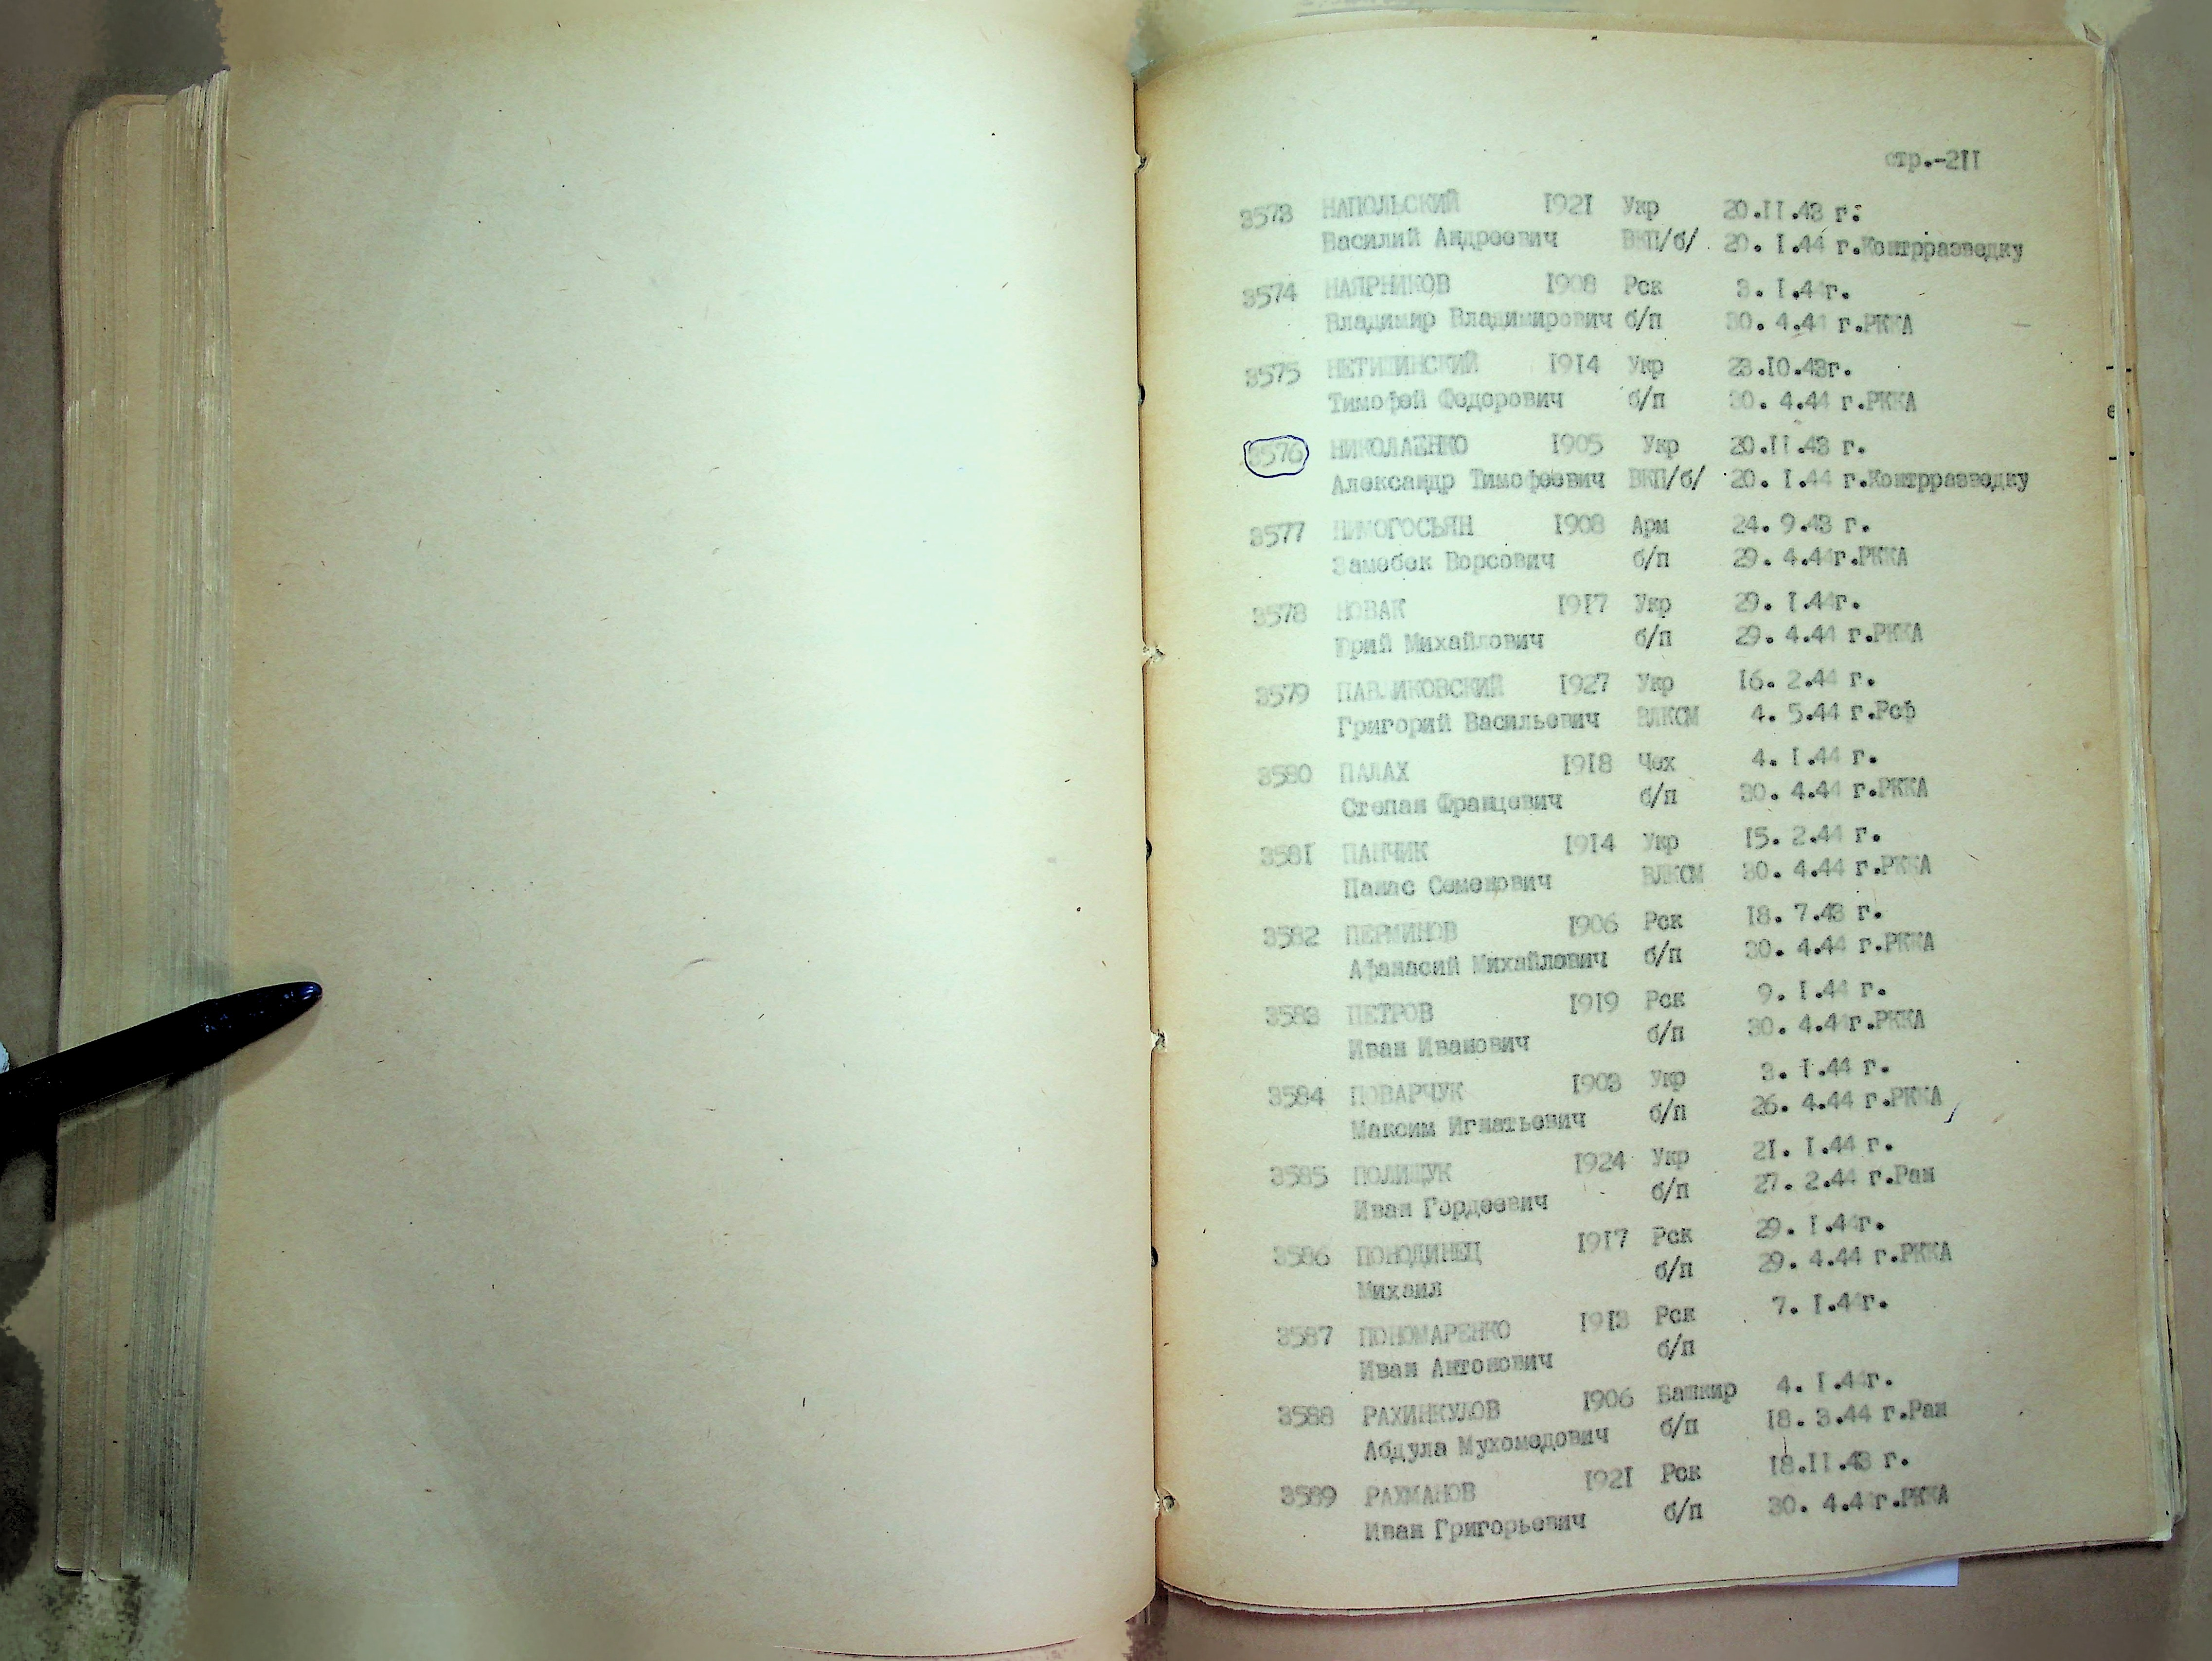 стр.-211
3573 НАПОЛЬСКИЙ 1921 Укр 20.11.43 г.
Василий Андреевич ВКП/б/ 20. 1.44 г.Контрразведку
3574 НАПРНИКОВ 1908 Рск 3. 1.44г.
Владимир Владимирович б/п 30. 4.44 г.РККА
3575 НЕТИШИНСКИЙ 1914 Укр 23.10.43г.
Тимофей Федорович б/п 30. 4.44 г.РККА
3576 НИКОЛАЕНКО 1905 Укр 20.11.43 г.
Александр Тимофеевич ВКП/б/ 20. 1.44 г.Контрразведку
3577 НИМОГОСЬЯН 1908 Арм 24. 9.43 г.
Замебек Ворсович б/п 29. 4.44г.РККА
3578 НОВАК 1917 Укр 29. 1.44г.
Юрий Михайлович б/п 29. 4.44 г.РККА
3579 ПАВЛИКОВСКИЙ 1927 Укр 16. 2.44 г.
Григорий Васильевич ВЛКСМ 4. 5.44 г.Рсф
3580 ПАЛАХ 1918 Чех 4. 1.44 г.
Степан Францевич б/п 30. 4.44 г.РККА
3581 ПАНЧИК 1914 Укр 15. 2.44 г.
Панас Семенович ВЛКСМ 30. 4.44 г.РККА
3582 ПЕРМИНОВ 1906 Рск 18. 7.43 г.
Афанасий Михайлович б/п 30. 4.44 г.РККА
3583 ПЕТРОВ 1919 Рск 9. 1.44 г.
Иван Иванович б/п 30. 4.44г.РККА
3584 ПОВАРЧУК 1903 Укр 3. 1.44 г.
Максим Игнатьевич б/п 26. 4.44 г.РККА
3585 ПОЛИЩУК 1924 Укр 21. 1.44 г.
Иван Гордеевич б/п 27. 2.44 г.Ран
3586 ПОНОДИНЕЦ 1917 Рск 29. 1.44г.
Михаил б/п 29. 4.44 г.РККА
3587 ПОНОМАРЕНКО 1913 Рск 7. 1.44г.
Иван Антонович б/п
3588 РАХИНКУЛОВ 1906 Башкир 4. 1.44г.
Абдула Мухомедович б/п 18. 3.44 г.Ран
3589 РАХМАНОВ 1921 Рск 18.11.43 г.
Иван Григорьевич б/п 30. 4.44г.РККА